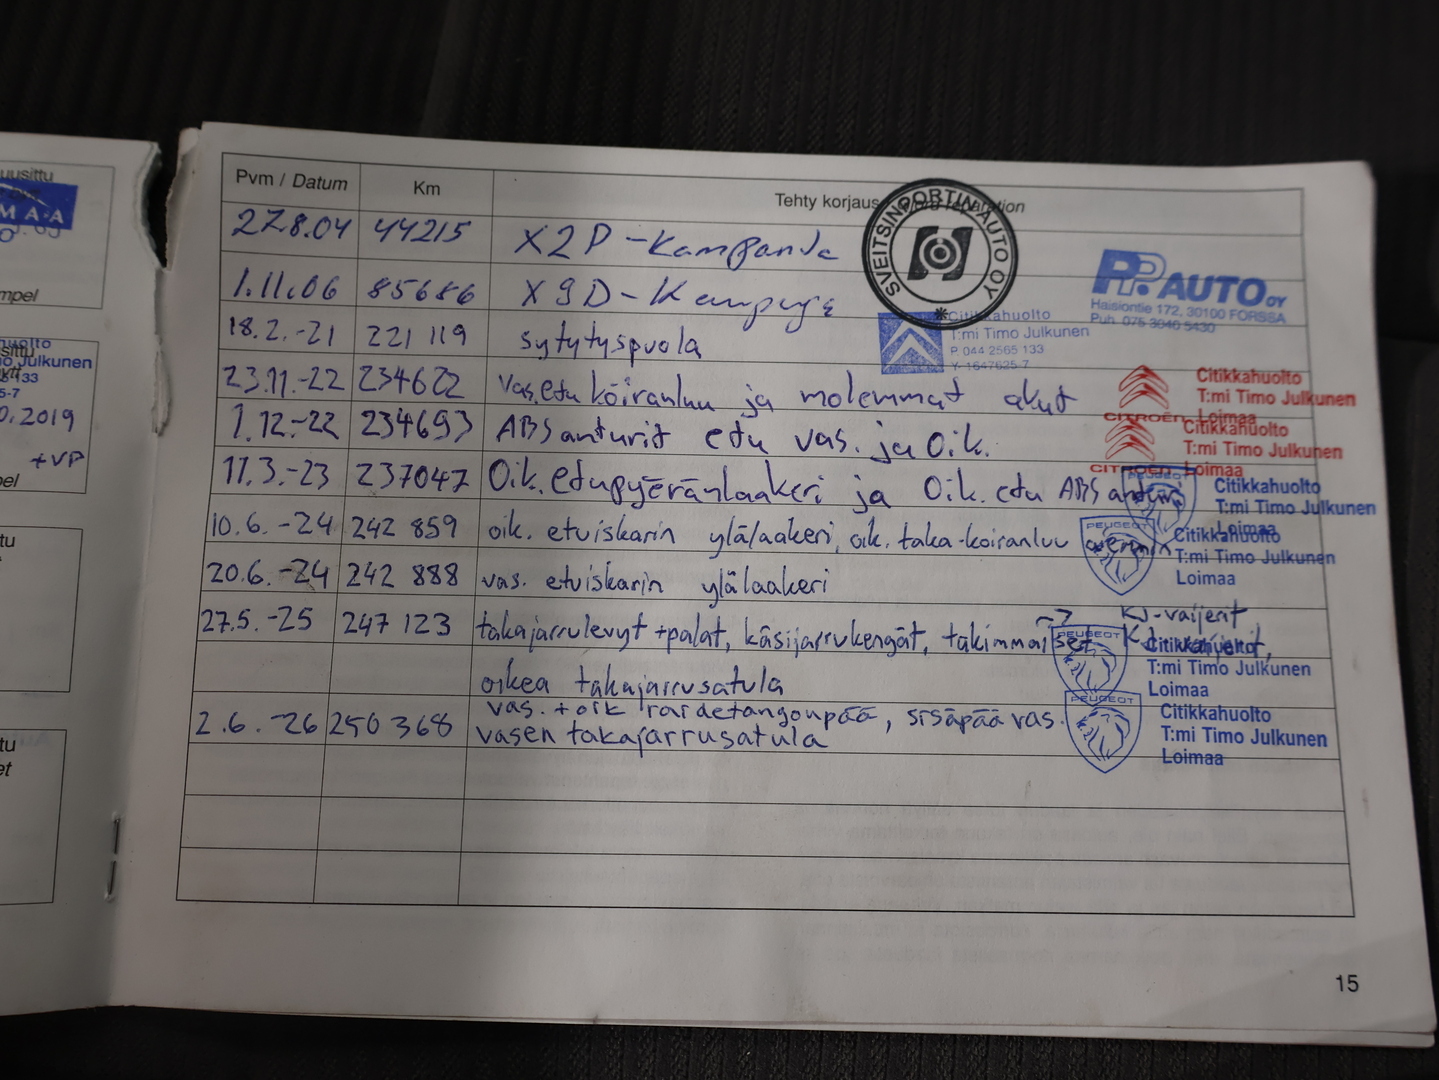 uusittu
M A-A
mpel
nuolto
o Julkunen
5-7
0.2019
+VP
pel
tu
tu
et
Pvm / Datum Km Tehty korjaus
SVEITSINPORTIN AUTO OY
27.8.04 44215 X2P-Kampanja
PP AUTO OY
Haisiontie 172, 30100 FORSSA
Puh. 075 3040 5430
1.11.06 85686 X9D-
Citikkahuolto
T:mi Timo Julkunen
P. 044 2565 133
Y-1647625-7
18.2.-21 221 119 sytytyspuola
23.11.-22 234622 vas. etu koiranluu ja molemmat akut
CITROËN
Citikkahuolto
T:mi Timo Julkunen
Loimaa
1.12.-22 234693 ABS anturit etu vas. ja Oik.
CITROËN
Citikkahuolto
T:mi Timo Julkunen
Loimaa
11.3.-23 237047 Oik. etupyöränlaakeri ja Oik. etu ABS anturi
PEUGEOT
Citikkahuolto
T:mi Timo Julkunen
Loimaa
10.6.-24 242 859 oik. etuiskarin ylälaakeri, oik. taka-koiranluu
PEUGEOT
Citikkahuolto
T:mi Timo Julkunen
Loimaa
20.6.-24 242 888 vas. etuiskarin ylälaakeri
→ KJ-vaijerit
27.5.-25 247 123 takajarrulevyt +palat, käsijarrukengät, takimmaiset KJ-vaijerit,
oikea takajarrusatula
PEUGEOT
Citikkahuolto
T:mi Timo Julkunen
Loimaa
2.6.-26 250 368 vas. + oik raidetangonpää, sisäpää vas.
vasen takajarrusatula
PEUGEOT
Citikkahuolto
T:mi Timo Julkunen
Loimaa
15